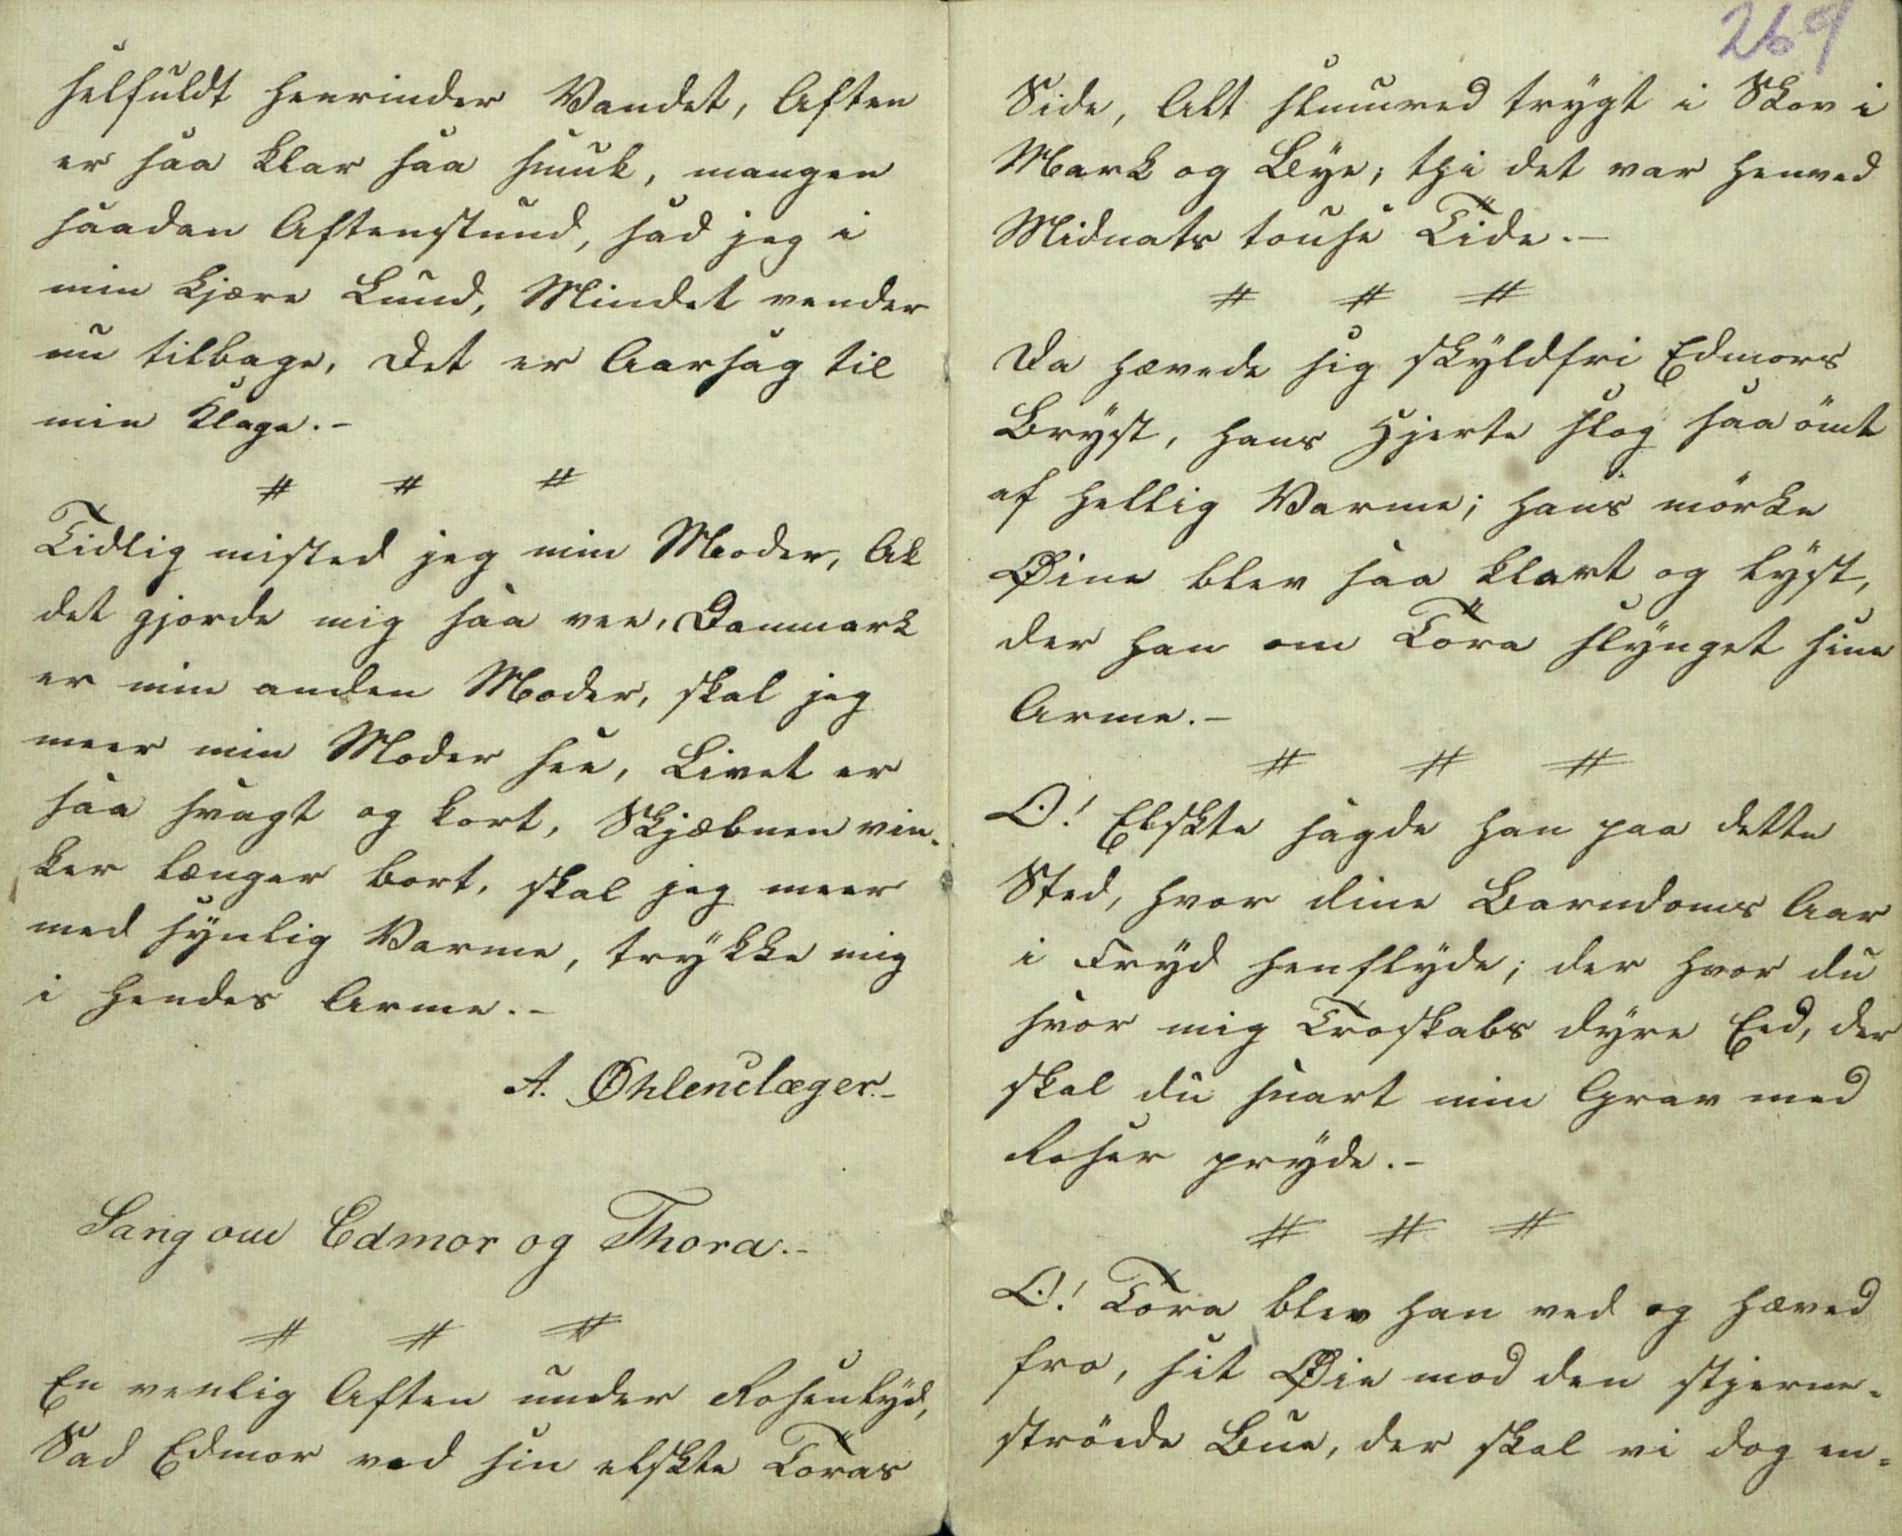 selfuldt henrinder Vandet, Aften
er saa klar saa smuk, mangen
saadan Aftenstund, sad jeg i
min kjære Lund, Mindet vender
nu tilbage, Det er Aarsag til
min Klage.-
# # #
Tidlig misted jeg min Moder, Ak
det gjorde mig saa vee, Danmark
er min anden Moder, skal jeg
meer min Moder see, Livet er
saa svagt og kort, Skjæbnen vin-
ker længer bort, skal jeg meer
med synlig Varme, trykke mig
i hendes Arme.-
A. Øhlenclæger.-
Sang om Edmor og Thora.-
# # #
En venlig Aften under Rosenlyd,
Sad Edmor ved sin elskte Toras
269
Side, Alt slumred trygt i Skov i
Mark og Bye; thi det var henved
Midnats tause Tide.-
# # #
Da hævede sig skyldfri Edmors
Bryst, hans Hjerte slog saa ömt
af hellig Varme; hans mörke
Øine blev saa klart og lyst,
der han om Tora slynget sine
Arme.-
# # #
O! Elskte sagde han paa dette
Sted, hvor dine Barndoms Aar
i Fryd henflyde; der hvor du
svor mig Troskabs dyre Eed, der
skal du snart min Grav med
Roser pryde.-
# # #
O! Tora blev han ved og hæved
fro, sit Øie mod den stjerne-
ströede Bue, der skal vi dog en-